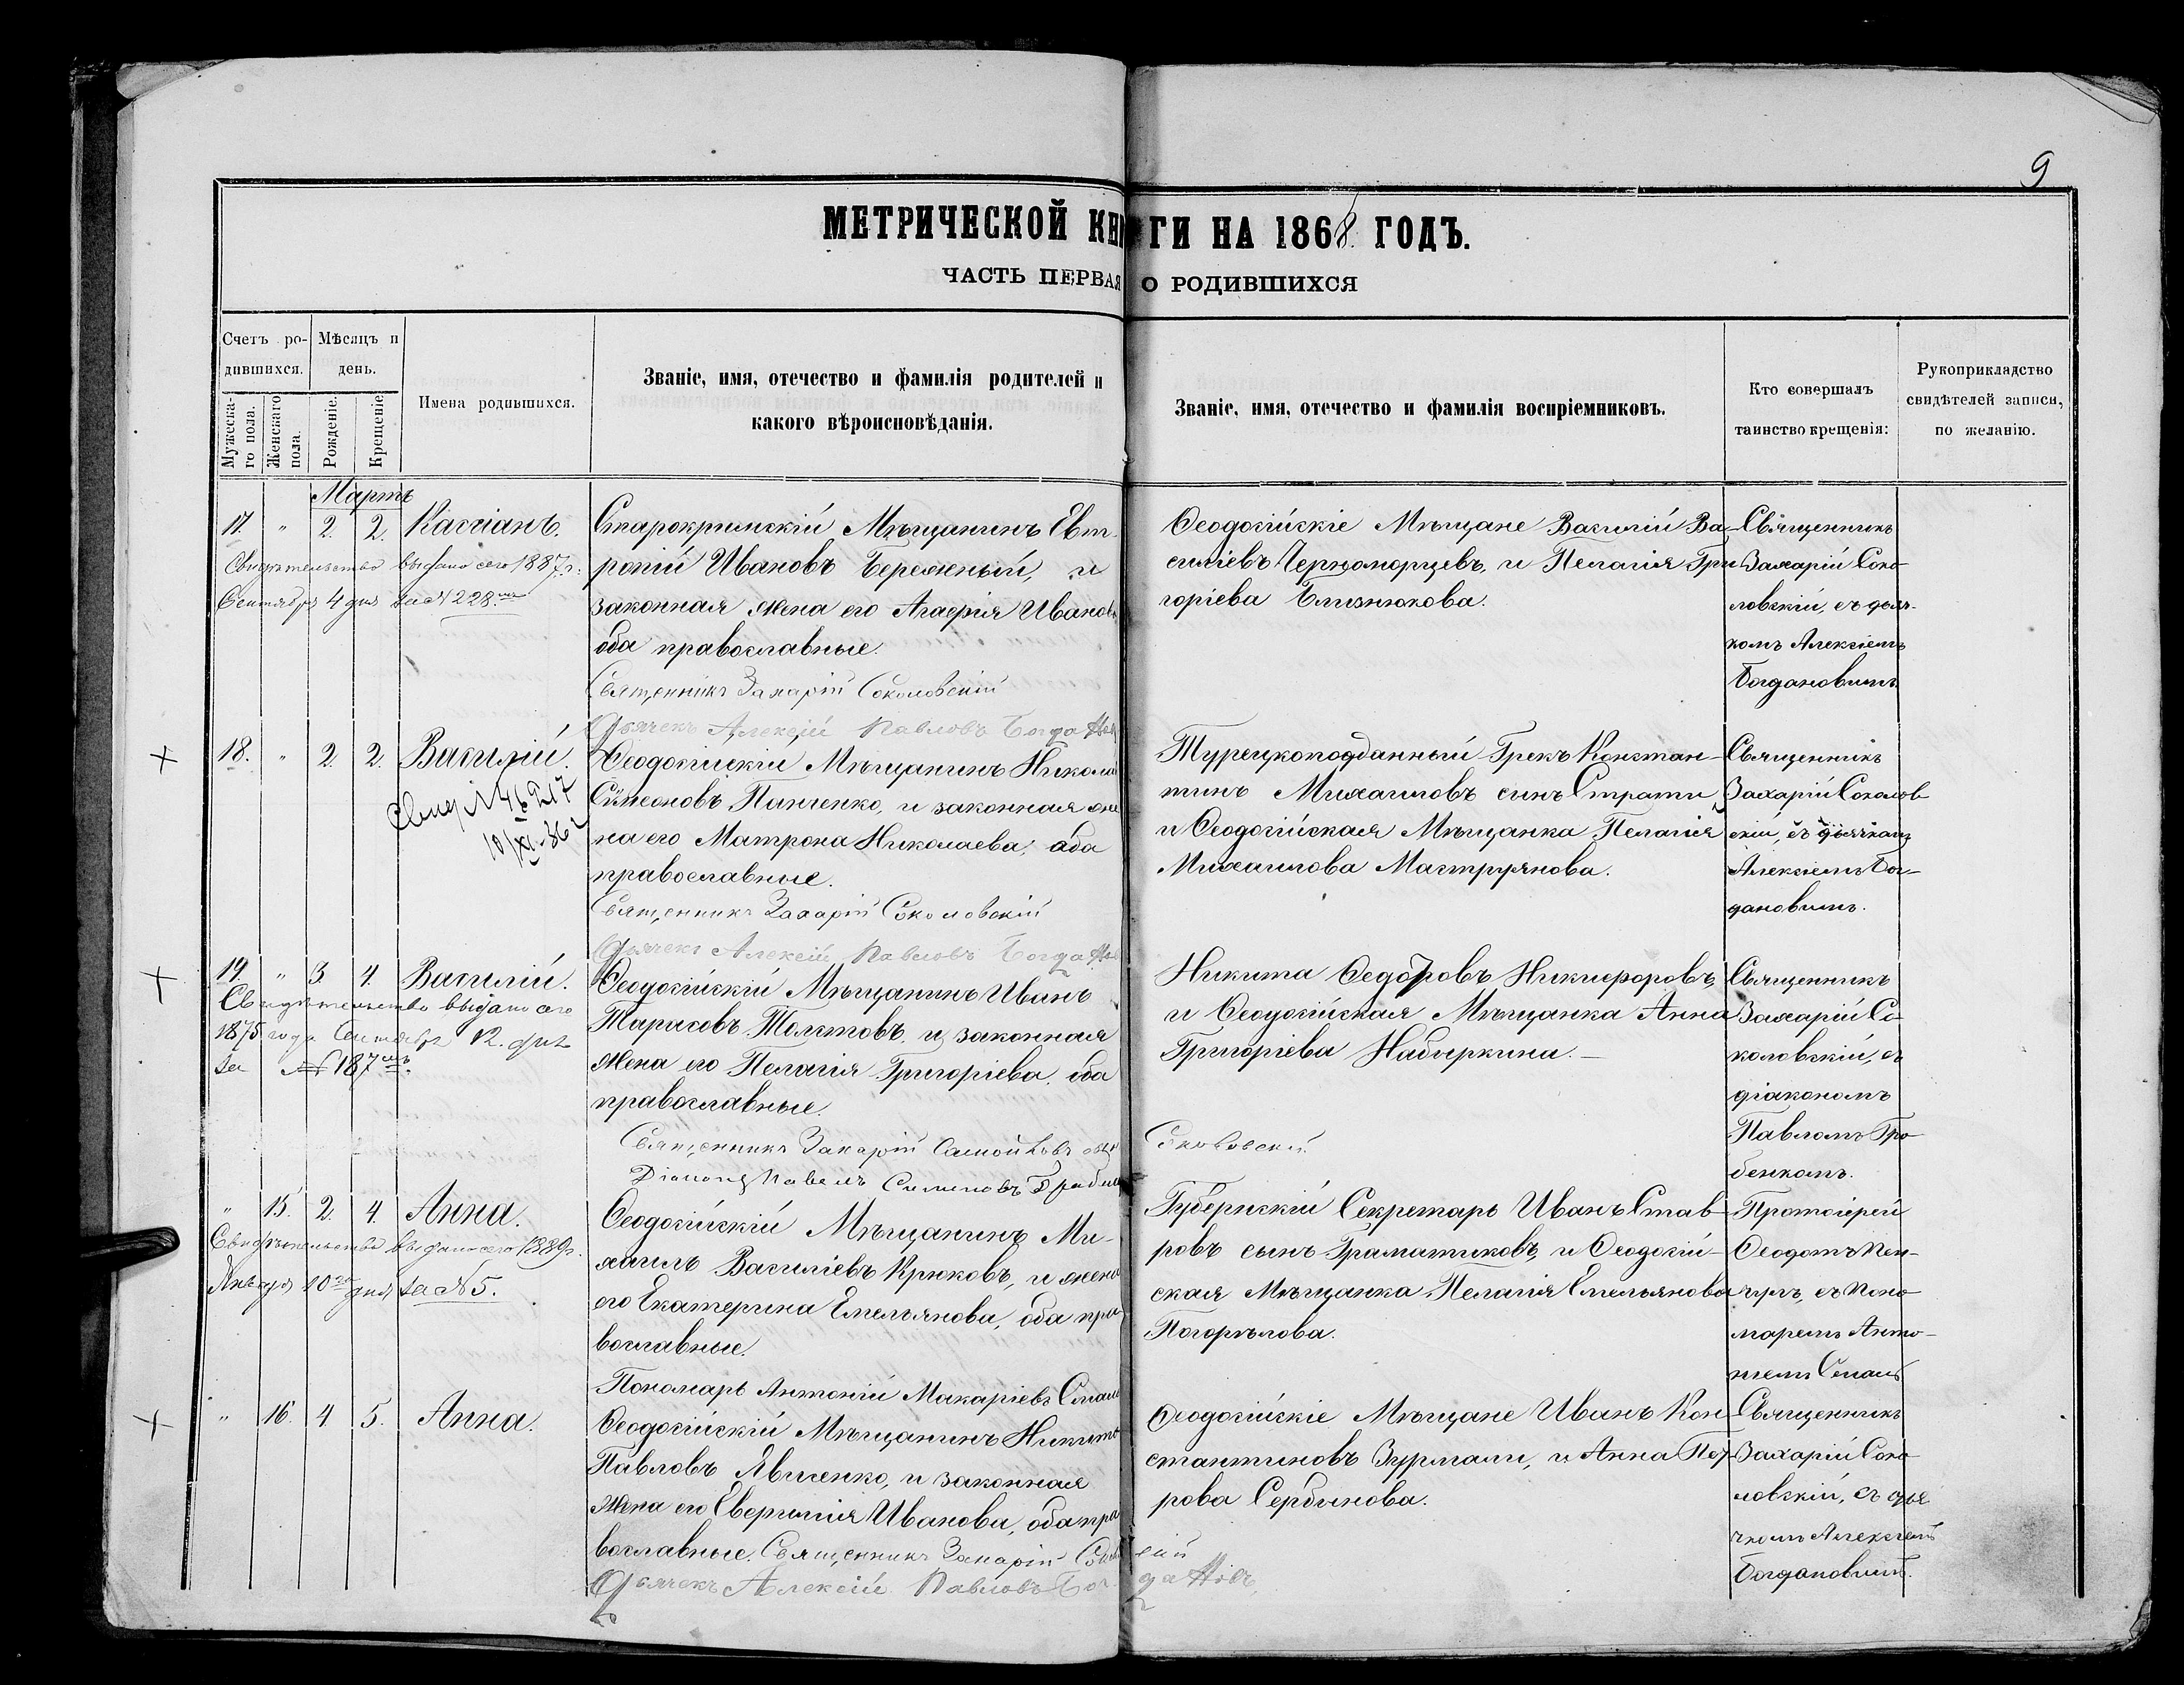 9
МЕТРИЧЕСКОЙ КНИГИ НА 1868 ГОДЪ.
ЧАСТЬ ПЕРВАЯ О РОДИВШИХСЯ
Счетъ ро-
дившихся.
Мужеска-
го пола.
Женскаго
пола.
Мѣсяцъ и
день.
Рожденіе.
Крещеніе.
Имена родившихся.
Званіе, имя, отечество и фамилія родителей и
какого вѣроисповѣданія.
Званіе, имя, отечество и фамилія воспріемниковъ.
Кто совершалъ
таинство крещенія:
Рукоприкладство
свидѣтелей записи,
по желанію.
Мартъ
17. " 2. 2. Кассіанъ.
Свидѣтельство выдано сего 1887 г.
Сентября 4 дня за № 228.
Старокрымскій Мѣщанинъ Евт-
ропій Ивановъ Бережный, и
законная жена его Агафія Иванова
оба православные.
Священникъ Захарій Соколовскій
Дьячекъ Алексѣй Павловъ Богданов
Ѳеодосійскіе Мѣщане Василій Ва-
силіевъ Черноморцевъ, и Пелагія Гри
горіева Близнюкова.
Священникъ
Захарій Соко-
ловскій, съ дьяч-
комъ Алексіемъ
Богдановымъ.
18. " 2. 2. Василій.
Ѳеодосійскій Мѣщанинъ Николай
Симеоновъ Панченко, и законная же
на его Матрона Николаева, оба
православные.
Священникъ Захарій Соколовскій
Дьячекъ Алексѣй Павловъ Богданов
Турецкоподданный Грекъ Констан-
тинъ Михаиловъ сынъ Страти,
и Ѳеодосійская Мѣщанка Пелагія
Михаилова
Священникъ
Захарій Соколов
скій, съ дьячкомъ
Алексіемъ Бог-
дановымъ.
19. " 3. 4. Василій.
Свидѣтельство выдано сего
1875 года Сентября 12. дня
за № 187.
Ѳеодосійскій Мѣщанинъ Иванъ
Тарасовъ Толстовъ, и законная
жена его Пелагія Григоріева, оба
православные.
Священникъ Захарій
Соколовскій
Павелъ
Никита Ѳедоровъ Никифоровъ,
и Ѳеодосійская Мѣщанка Анна
Григоріева Набыркина.
Священникъ
Захарій Со-
коловскій, съ
діакономъ
Павломъ Гро-
бенкомъ.
" 15. 2. 4. Анна.
Свидѣтельство выдано сего 1889 г.
Января 10го дня за № 5.
Ѳеодосійскій Мѣщанинъ Ми-
хаилъ Василіевъ Крюковъ, и жена
его Екатерина Емельянова, оба пра
вославные.
Пономарь Антоній Макаріевъ
Губернскій Секретарь Иванъ Став-
ровъ сынъ Граматиковъ, и Ѳеодосій-
ская Мѣщанка Пелагія Емельянова
Погорѣлова.
Протоіерей
съ поно-
маремъ Анто-
ніемъ
" 16. 4. 5. Анна.
Ѳеодосійскій Мѣщанинъ Никита
Павловъ Явисенко, и законная
жена его Евфимія Иванова, оба пра
вославные. Священникъ Захарій
Дьячекъ Алексѣй Павловъ Богдановъ
Ѳеодосійскіе Мѣщане Иванъ Кон-
стантиновъ Зурмали, и Анна Пет-
рова Сербинова.
Священникъ
Захарій Соко-
ловскій, съ дья
чкомъ Алексіемъ
Богдановымъ.